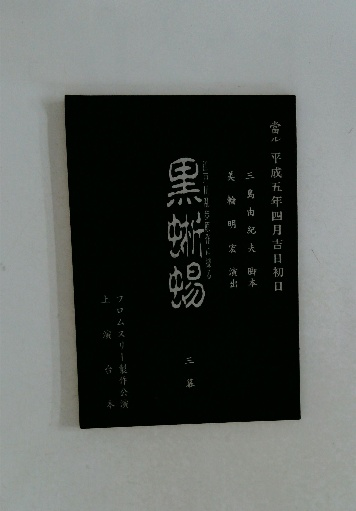 當ル 平成五年四月吉日初日
三島由紀夫 脚本
美輪明宏 演出
江戸川乱歩原作に依る
黒蜥蜴
三幕
フロムスリー製作公演
上演台本